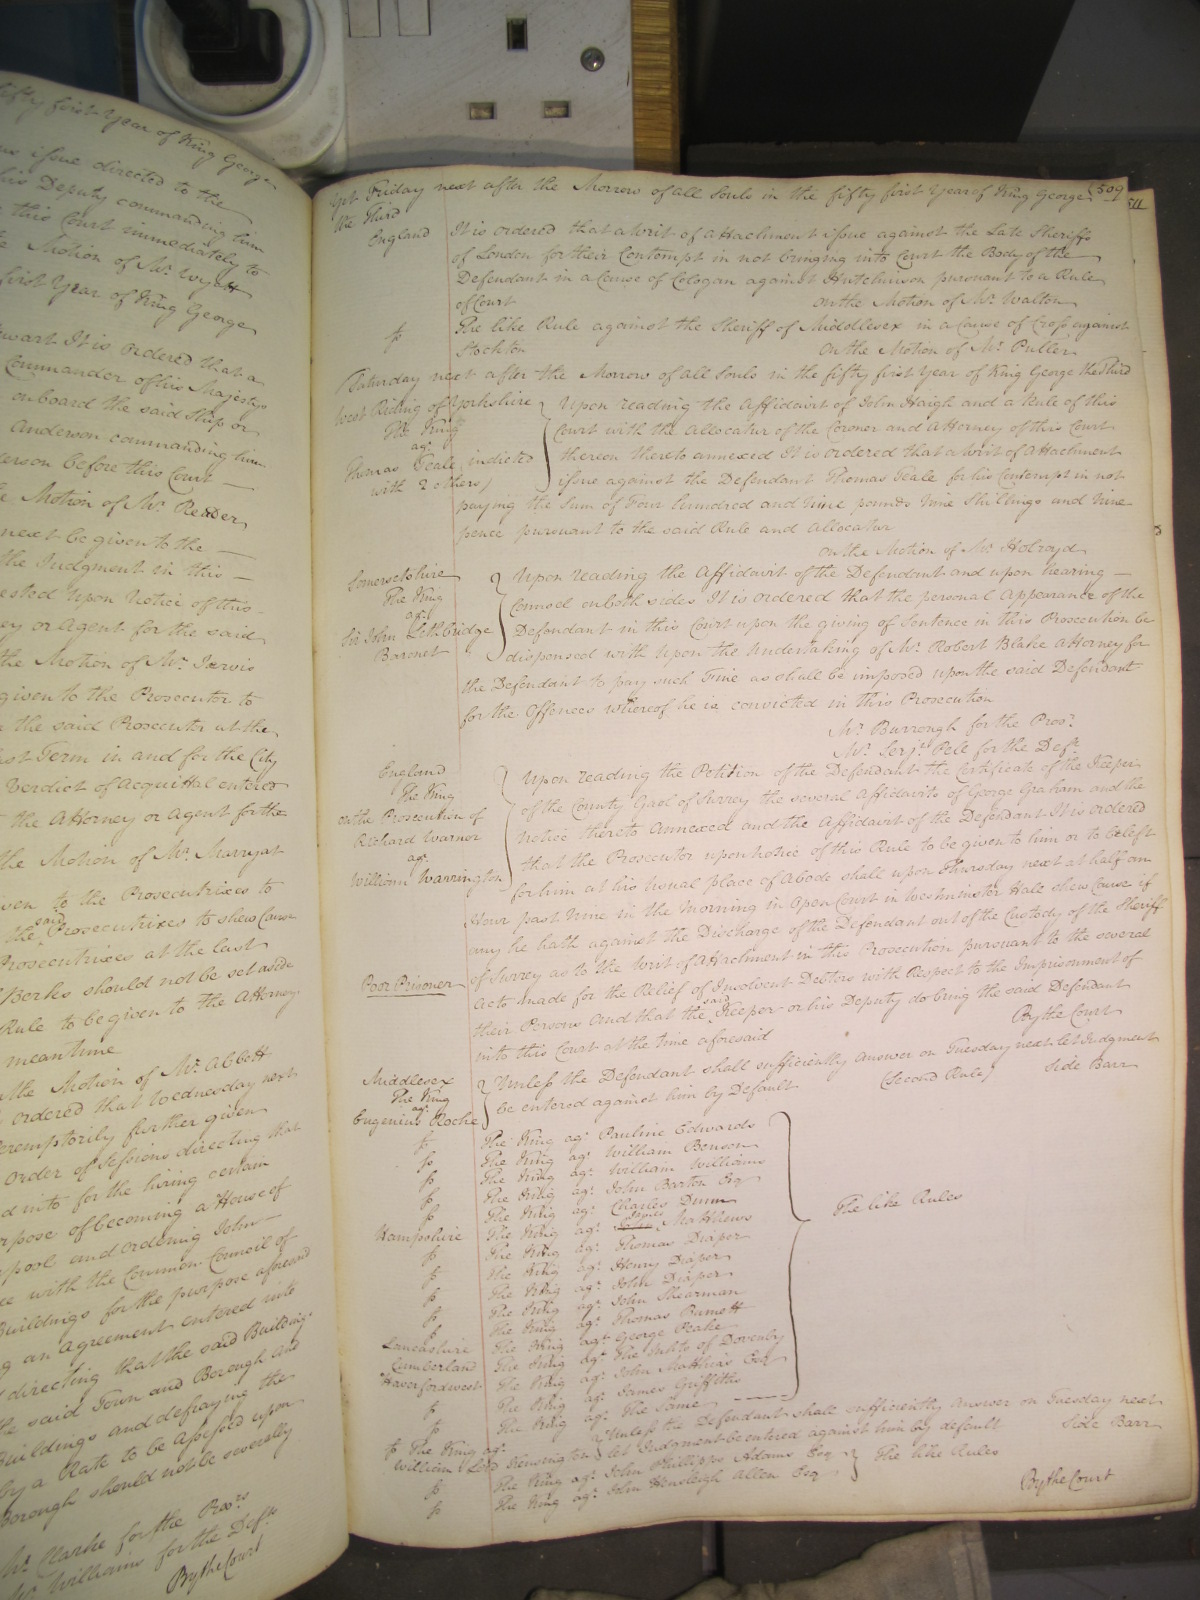 fifty first Year of King George
issue directed to the
his Deputy commanding him
this Court immediately to
Motion of Mr. Wyatt
first Year of King George
It is ordered that a
Commander of his Majestys
onboard the said Ship or
Anderson commanding him
before this Court
Motion of Mr. Reader
next be given to the
the Judgment in this
upon Notice of this
or Agent for the said
the Motion of Mr. Jervis
given to the Prosecutor to
the said Prosecutor at the
last Term in and for the City
Verdict of Acquittal entered
the Attorney or Agent for the
the Motion of Mr. Marryat
given to the Prosecutrixes to
the said Prosecutrixes to shew Cause
Prosecutrixes at the last
Berks should not be set aside
Rule to be given to the Attorney
meantime
the Motion of Mr. Abbott
ordered that Wednesday next
peremptorily further given
order of Sessions directing that
into for the hiring certain
purpose of becoming a House of
pool and ordering John
with the Common Council of
Buildings for the purpose aforesaid
an Agreement entered into
directing that the said Building
the said Town and Borough and
Buildings and defraying the
by a Rate to be assessed upon
Borough should not be severally
Mr. Clarke for the Prors
Mr. Williams for the Defts
By the Court
509
511
Yet Friday next after the Morrow of all Souls in the fifty first Year of King George
the Third
England
It is ordered that a Writ of attachment issue against the Late Sheriffs
of London for their Contempt in not bringing into Court the Body of the
Defendant in a Cause of Cologan against Hutchinson pursuant to a Rule
of Court
on the Motion of Mr. Walton
The like Rule against the Sheriff of Middlesex in a Cause of Cross against
Stockton
on the Motion of Mr. Puller
Saturday next after the Morrow of all Souls in the fifty first Year of King George the Third
West Riding of Yorkshire
The King
agt.
Thomas Teale indicted
with 2 others)
Upon reading the Affidavit of John Haigh and a Rule of this
Court with the allocatur of the Coroner and Attorney of this Court
thereon thereto annexed It is ordered that a Writ of Attachment
issue against the Defendant Thomas Teale for his Contempt in not
paying the Sum of Four hundred and Nine pounds Nine Shillings and Nine
pence pursuant to the said Rule and Allocatur
on the Motion of Mr. Holroyd
Somersetshire
The King
agt.
Sir John Lethbridge
Baronet
Upon reading the Affidavit of the Defendant and upon hearing
Counsel on both sides It is ordered that the personal Appearance of the
Defendant in this Court upon the giving of Sentence in this Prosecution be
dispensed with upon the Undertaking of Mr. Robert Blake Attorney for
the Defendant to pay such Fine as shall be imposed upon the said Defendant
for the Offences whereof he is convicted in this Prosecution
Mr. Burrough for the Pros.
Mr. Serjt. Pele for the Deft.
England
The King
on the Prosecution of
Richard Warnor
agt.
William Warrington
Poor Prisoner
Upon reading the Petition of the Defendant the Certificate of the Keeper
of the County Gaol of Surrey the several Affidavits of George Graham and the
Notice thereto Annexed and the Affidavit of the Defendant It is ordered
that the Prosecutor upon Notice of this Rule to be given to him or to be left
for him at his Usual place of Abode shall upon Thursday next at half an
Hour past Nine in the Morning in Open Court in Westminster Hall shew Cause if
any he hath against the Discharge of the Defendant out of the Custody of the Sheriff
of Surrey as to the Writ of Attachment in this Prosecution pursuant to the several
Acts made for the Relief of Insolvent Debtors with Respect to the Imprisonment of
their Persons And that the said Keeper or his Deputy do bring the said Defendant
into this Court at the time aforesaid
By the Court
Middlesex
The King
agt.
Eugenius Roche
Unless the Defendant shall sufficiently answer on Tuesday next let Judgment
be entered against him by Default
(Second Rule)
Side Barr
The King agt. Pauline Edwards
The King agt. William Benson
The King agt. William Williams
The King agt. John Barton Esq
The King agt. Charles Dunn
The King agt. James Matthews
Hampshire
The King agt. Thomas Draper
The King agt. Henry Draper
The King agt. John Draper
The King agt. John Shearman
The King agt. Thomas Burnett
The King agt. George Peake
The like Rules
Lancashire
Cumberland
The King agt. The Inhts of Dovenby
Haverfordwest
The King agt. John Matthias Esq
The King agt. James Griffiths
The King agt. The same
The King agt.
William Lord Kensington
Unless the Defendant shall sufficiently answer on Tuesday next
let Judgment be entered against him by default
Side Barr
The King agt. John Phillipps Adams Esq
The King agt. John Hensleigh Allen Esq
The like Rules
By the Court